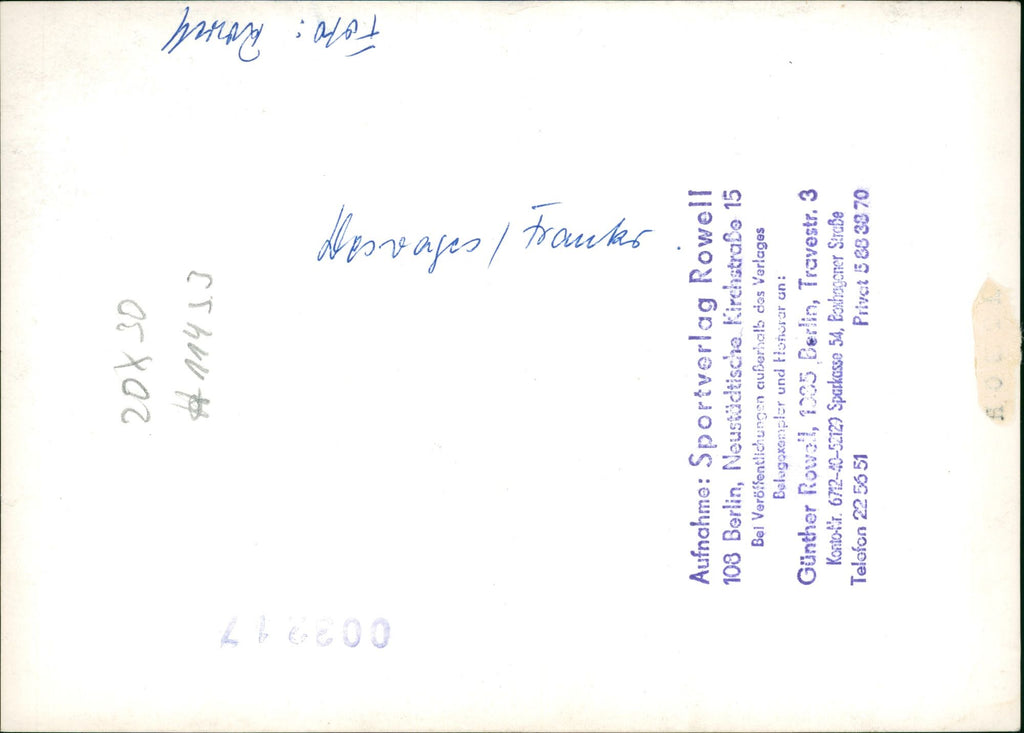 Foto: Rowell
Desvages / Frankr
20X30
Aufnahme: Sportverlag Rowell
108 Berlin, Neustädtische Kirchstraße 15
Bei Veröffentlichungen außerhalb des Verlages
Belegexemplar und Honorar an:
Günther Rowell, 1035 Berlin, Travestr. 3
Konto-Nr. 6712-40-52129 Sparkasse 54, Boxhagener Straße
Telefon 22 56 51 Privat 5 88 38 70
003217